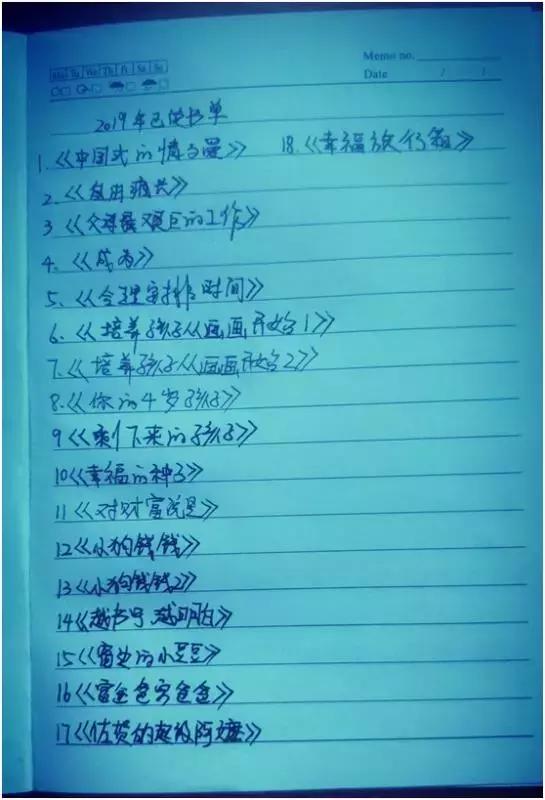 Mo Tu We Th Fr Sa Su
Memo no.
Date / /
2019年已读书单
1.《中国式的情与爱》 18.《幸福旅行箱》
2.《自由
3《父母最艰巨的工作》
4.《成为》
5.《合理安排时间》
6.《培养孩子从画画开始1》
7.《培养孩子从画画开始2》
8.《你的4岁孩子》
9《剩下来的孩子》
10《幸福的种子》
11《对财富说是》
12《小狗钱钱》
13《小狗钱钱2》
14《越书写越明白》
15《窗边的小豆豆》
16《富爸爸穷爸爸》
17《佐贺的超级阿嬷》